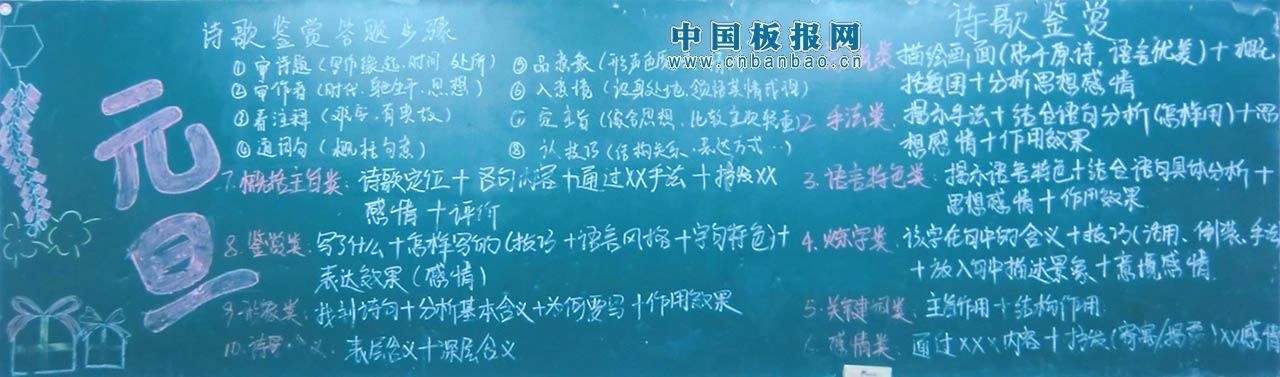 元旦
诗歌鉴赏答题步骤
① 审诗题(写作缘起、时间 处所)
② 审作者(时代、生平、思想)
③ 看注释(难点、有典故)
④ 通词句(概括句意)
⑤ 品意象(形声色
⑥ 入意境(设身处地、领悟其情或调)
⑦ 定主旨(综合思想、比较主次轻重)
⑧ 认技巧(结构关系、表达方式…)
7. 概括主旨类:诗歌定位+各句内容+通过XX手法+抒发XX
感情+评价
8. 鉴赏类:写了什么+怎样写的(技巧+语言风格+字句特色)+
表达效果(感情)
9. 形象类:找到诗句+分析基本含义+为何要写+作用效果
10. 诗 含义:表层含义+深层含义
中国板报网
www.cnbanbao.cn
诗歌鉴赏
类 描绘画面(忠于原诗,语言优美)+概
括氛围+分析思想感情
2. 手法类:揭示手法+结合语句分析(怎样用)+思
想感情+作用效果
3. 语言特色类:揭示语言特色+结合语句具体分析+
思想感情+作用效果
4. 炼字类:该字在句中的含义+技巧(活用、倒装、手法
+放入句中描述景象+意境感情
5. 关键词类:主旨作用+结构作用
6. 感情类:通过XXX内容+抒发(寄寓/揭露)XX感情